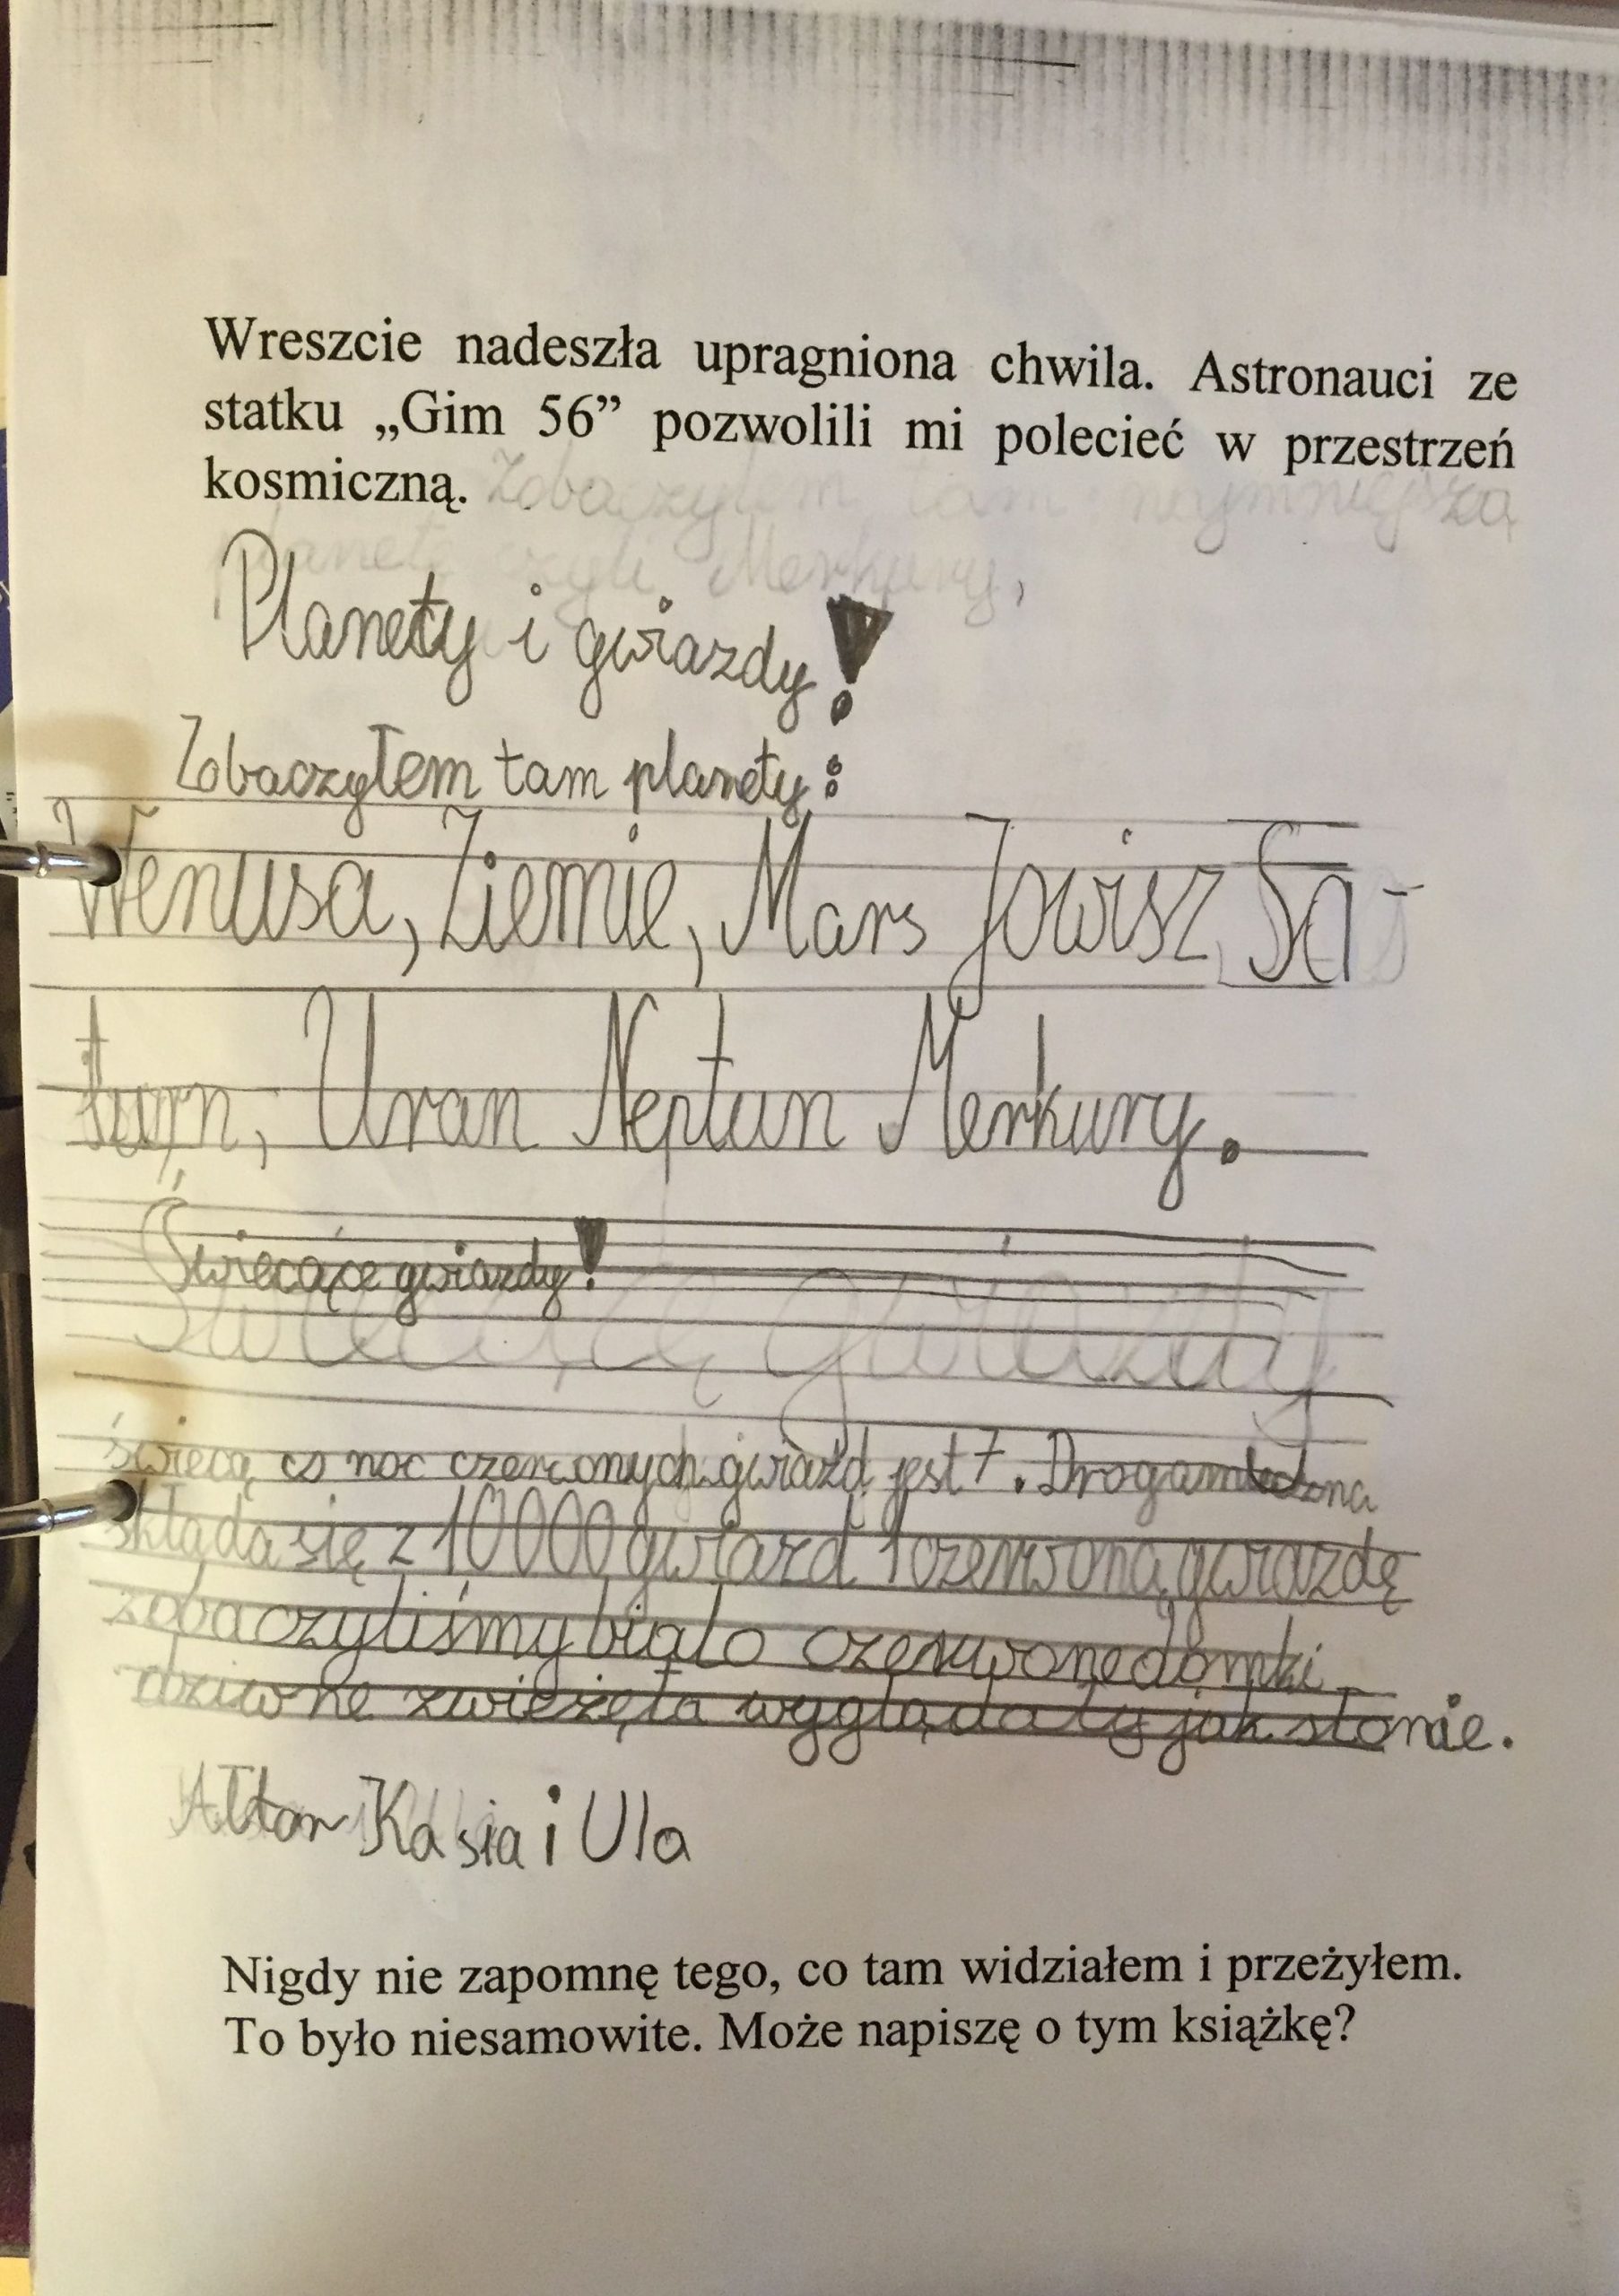 Wreszcie nadeszła upragniona chwila. Astronauci ze
statku „Gim 56” pozwolili mi polecieć w przestrzeń
kosmiczną. Zobaczyłem tam najmniejszą
planetę czyli Merkury,
Planety i gwiazdy!
Zobaczyłem tam planety:
Wenusa, Ziemie, Mars Jowisz, Sa-
turn, Uran Neptun Merkury.
Świecące gwiazdy!
Świecące gwiazdy
świecą co noc czerwonych gwiazd jest 7. Droga mleczna
składa się z 10000 gwiazd 1 czerwoną gwiazdę
zobaczyliśmy biało czerwone domki
dziwne zwieżęta wyglądały jak słonie.
Kasia i Ula
Nigdy nie zapomnę tego, co tam widziałem i przeżyłem.
To było niesamowite. Może napiszę o tym książkę?